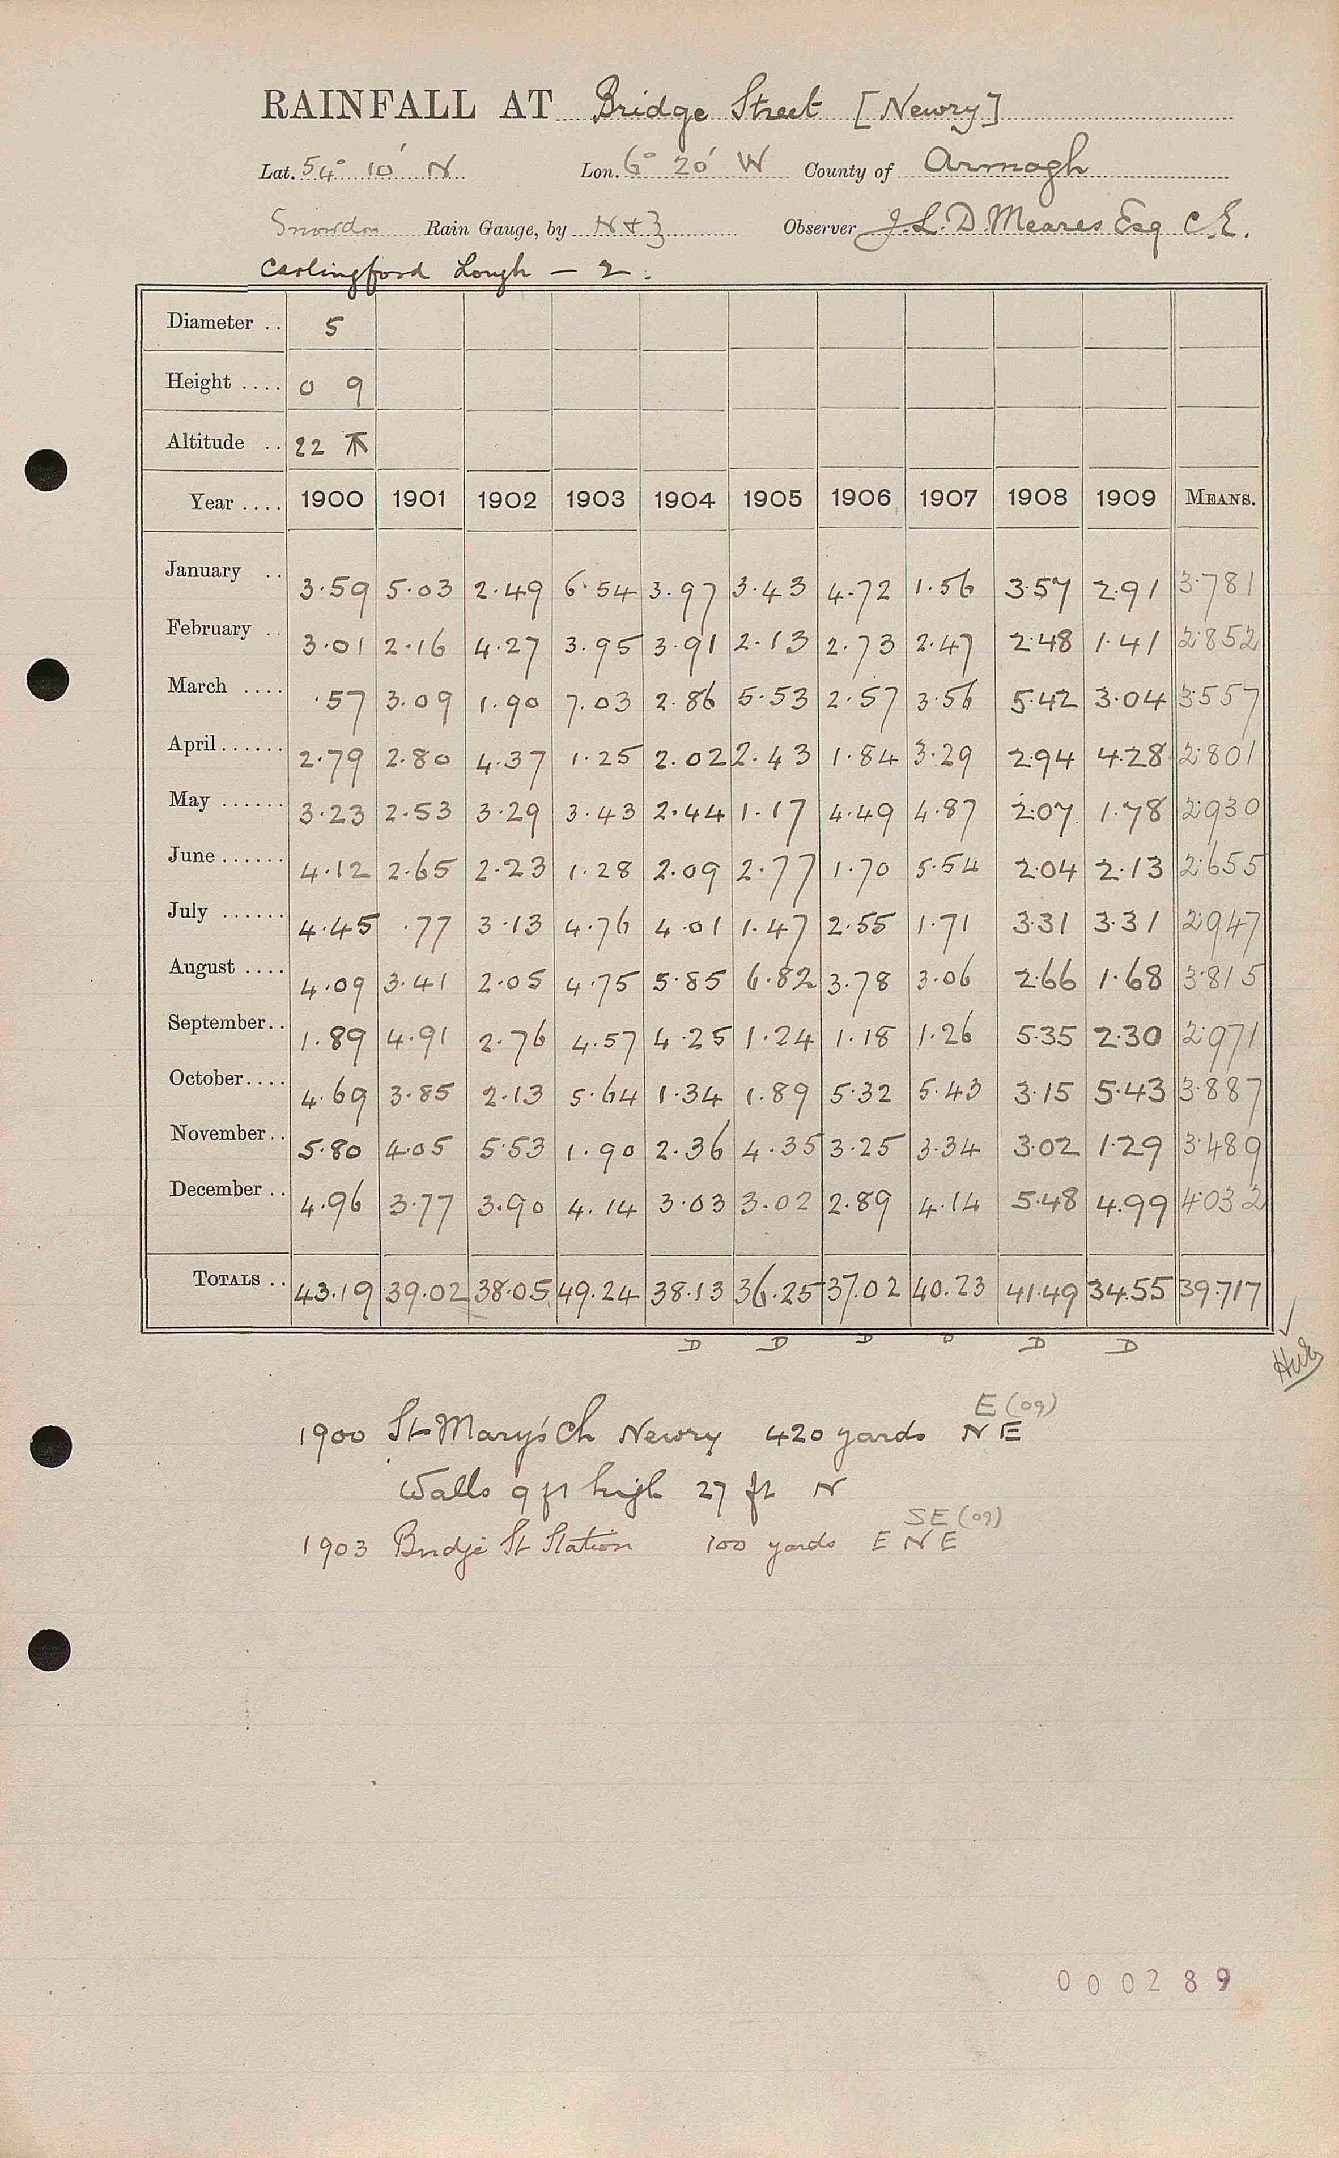 RAINFALL AT Bridge Street [Newry]
Lat. 54° 10' N Lon. 6° 20' W County of Armagh
Snowdon Rain Gauge, by N & Z Observer J. L. D. Meares Esq C.E.
Carlingford Lough — 2.
Diameter .. 5
Height .... 0 9
Altitude .. 22
Year .... 1900 1901 1902 1903 1904 1905 1906 1907 1908 1909 MEANS.
January .. 3.59 5.03 2.49 6.54 3.97 3.43 4.72 1.56 3.57 2.91 3.781
February .. 3.01 2.16 4.27 3.95 3.91 2.13 2.73 2.47 2.48 1.41 2.852
March .... .57 3.09 1.90 7.03 2.86 5.53 2.57 3.56 5.42 3.04 3.557
April...... 2.79 2.80 4.37 1.25 2.02 2.43 1.84 3.29 2.94 4.28 2.801
May ...... 3.23 2.53 3.29 3.43 2.44 1.17 4.49 4.87 2.07 1.78 2.930
June...... 4.12 2.65 2.23 1.28 2.09 2.77 1.70 5.54 2.04 2.13 2.655
July ...... 4.45 .77 3.13 4.76 4.01 1.47 2.55 1.71 3.31 3.31 2.947
August .... 4.09 3.41 2.05 4.75 5.85 6.82 3.78 3.06 2.66 1.68 3.815
September.. 1.89 4.91 2.76 4.57 4.25 1.24 1.18 1.26 5.35 2.30 2.971
October.... 4.69 3.85 2.13 5.64 1.34 1.89 5.32 5.43 3.15 5.43 3.887
November.. 5.80 4.05 5.53 1.90 2.36 4.35 3.25 3.34 3.02 1.29 3.489
December .. 4.96 3.77 3.90 4.14 3.03 3.02 2.89 4.14 5.48 4.99 4.032
TOTALS .. 43.19 39.02 38.05 49.24 38.13 36.25 37.02 40.23 41.49 34.55 39.717
D D D D D D
E (09)
1900 St Mary's Ch Newry 420 yards NE
Walls 9 ft high 27 ft N
SE (09)
1903 Bridge St Station 100 yards ENE
000289